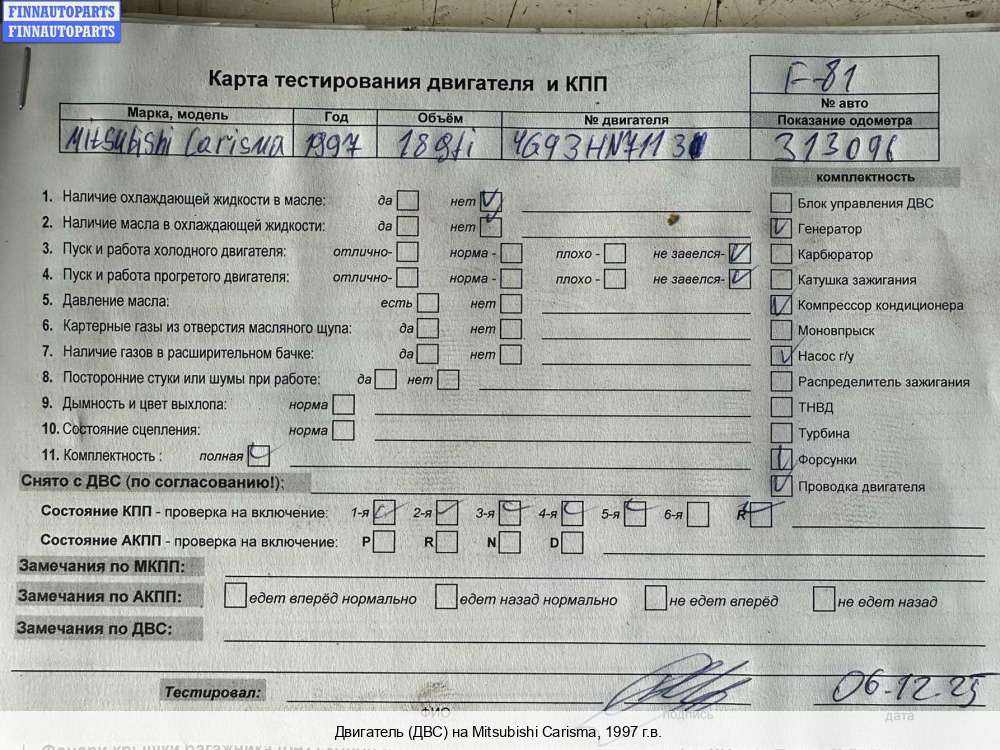 FINNAUTOPARTS
FINNAUTOPARTS
Карта тестирования двигателя и КПП
F-81
№ авто
Марка, модель Год Объём № двигателя Показание одометра
Mitsubishi Carisma 1997 1.8 gdi 4G93HN7113 313096
комплектность
1. Наличие охлаждающей жидкости в масле: да нет
Блок управления ДВС
2. Наличие масла в охлаждающей жидкости: да нет
Генератор
3. Пуск и работа холодного двигателя: отлично- норма - плохо - не завелся-
Карбюратор
4. Пуск и работа прогретого двигателя: отлично- норма - плохо - не завелся-
Катушка зажигания
5. Давление масла: есть нет
Компрессор кондиционера
6. Картерные газы из отверстия масляного щупа: да нет
Моновпрыск
7. Наличие газов в расширительном бачке: да нет
Насос г/у
8. Посторонние стуки или шумы при работе: да нет
Распределитель зажигания
9. Дымность и цвет выхлопа: норма
ТНВД
10. Состояние сцепления: норма
Турбина
11. Комплектность : полная
Форсунки
Снято с ДВС (по согласованию!):
Проводка двигателя
Состояние КПП - проверка на включение: 1-я 2-я 3-я 4-я 5-я 6-я R
Состояние АКПП - проверка на включение: P R N D
Замечания по МКПП:
Замечания по АКПП: едет вперёд нормально едет назад нормально не едет вперёд не едет назад
Замечания по ДВС:
Тестировал: 06.12.25
ФИО подпись дата
Двигатель (ДВС) на Mitsubishi Carisma, 1997 г.в.